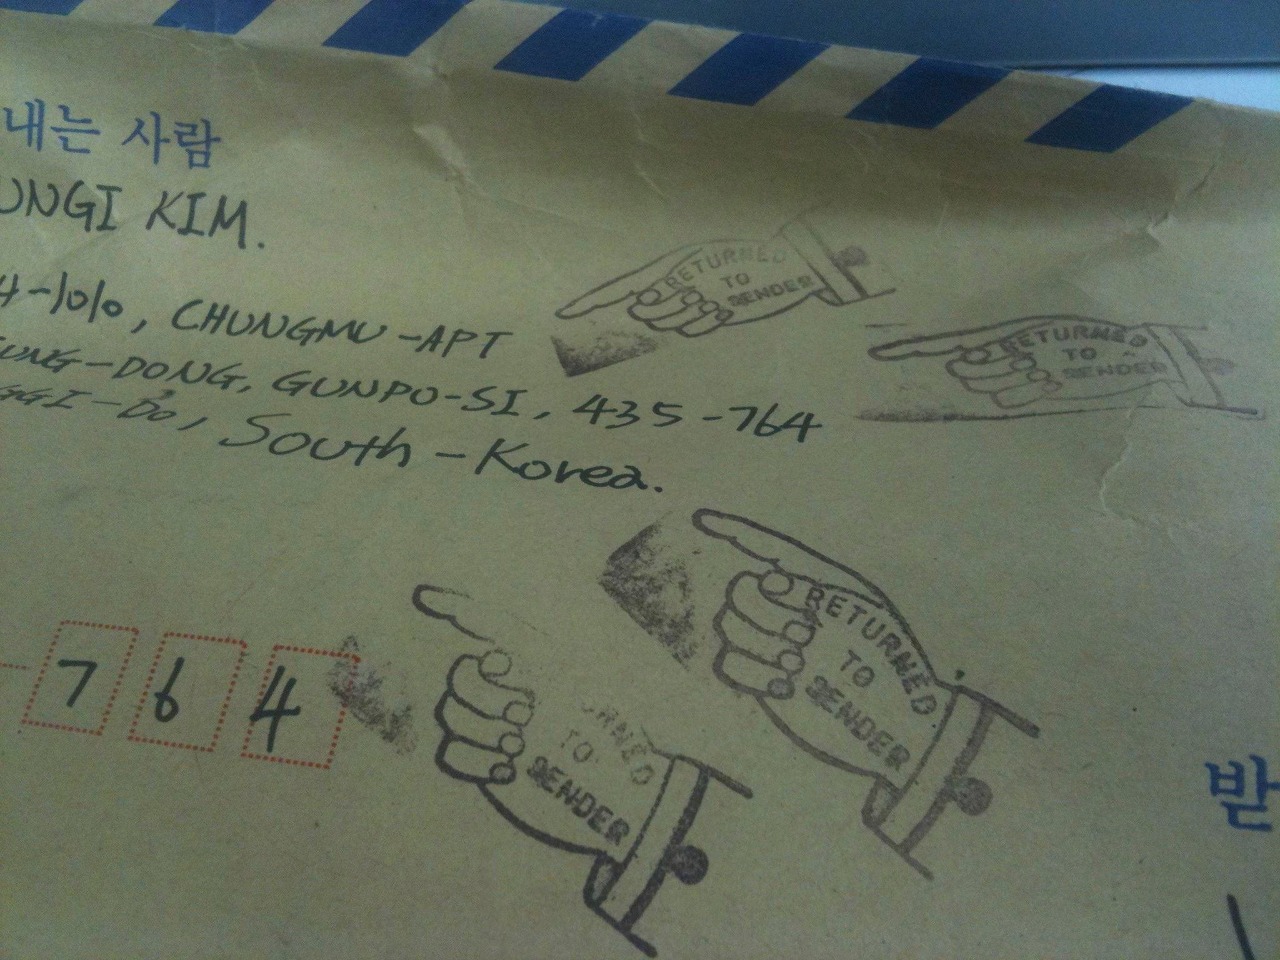 내는 사람
UNGI KIM.
4-1010, CHUNGMU-APT
UNG-DONG, GUNPO-SI, 435-764
GGI-DO, South-Korea.
RETURNED
TO
SENDER
RETURNED
TO
SENDER
RETURNED
TO
SENDER
URNED
TO
SENDER
7 6 4
받